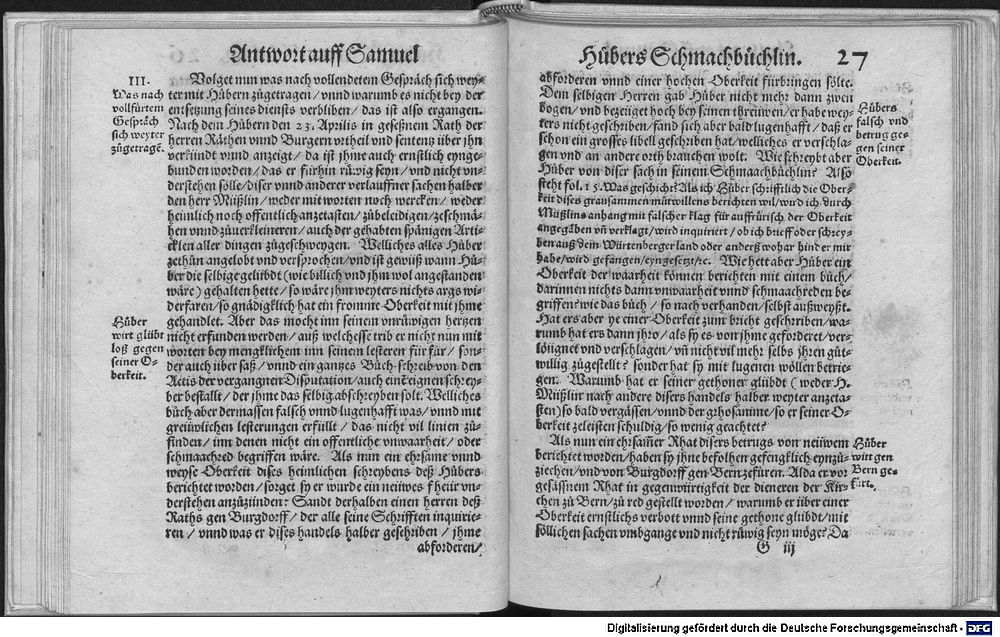 Antwort auff Samuel
III.
Was nach
vollfürtem
Gespräch
sich weyter
zügetragē.
Volget nun was nach vollendetem Gespräch sich wey-
ter mit Hübern zügetragen / vnnd warumb es nicht bey der
entsetzung seines diensts verbliben / das ist also ergangen.
Nach dem Hübern den 23. Aprilis in geseßnem Rath der
herren Räthen vnnd Burgern vrtheil vnd sentents über jhn
verkündt vnnd anzeigt / da ist jhme auch ernstlich eynge-
bunden worden / das er fürhin rüwig seyn / vnd nicht vn-
derstehen sölle / diser vnnd anderer verlauffner sachen halber
den herr Müßlin / weder mit worten noch wercken / weder
heimlich noch offentlich anzetasten / zübeleidigen / zeschmä-
hen vnnd züuerkleineren / auch der gehabten spänigen Arti-
cklen aller dingen zügeschweygen. Welliches alles Hüber
zethün angelobt vnd versprochen / vnd ist gewüß wann Hü-
ber die selbige gelübdt (wie billich vnd jhm wol angestanden
wäre) gehalten hette / so wäre jhm weyters nichts args wi-
derfaren / so gnädigklich hat ein fromme Oberkeit mit jhme
gehandlet. Aber das mocht inn seinem vnrüwigen hertzen
nicht erfunden werden / auß welchesse trib er nicht nun mit
worten bey mengklichem inn seinem lesteren für für / son-
der auch über saß / vnnd ein gantzes Büch schreib von den
Actis der vergangnen Disputation / auch einē eignen schrey-
ber bestallt / der jhme das selbig abschreyben solt. Welliches
büch aber dermassen falsch vnnd lugenhafft was / vnnd mit
greüwlichen lesterungen erfüllt / das nicht vil linien zü-
finden / inn denen nicht ein offentliche vnwaarheit / oder
schmaachred begriffen wäre. Als nun ein ehrsame vnnd
weyse Oberkeit dises heimlichen schreybens deß Hübers
berichtet worden / sorget sy er wurde ein neüwes fheür vn-
derstehen anzüzinden: Sandt derhalben einen herren deß
Raths gen Burgdorff / der alle seine Schrifften inquirie-
ren / vnnd was er dises handels halber geschriben / jhme
abforderen /
Hüber
wirt glübt
loß gegen
seiner O-
berkeit.
Hübers Schmachbüchlin. 27
abforderen vnnd einer hochen Oberkeit fürbringen sölte.
Dem selbigen Herren gab Hüber nicht mehr dann zwen
bogen / vnd bezeüget hoch bey seinen threüwen / er habe wey-
ters nicht geschriben / fand sich aber bald lugenhafft / daß er
schon ein grosses libell geschriben hat / welliches er verschla-
gen vnd an andere orth brauchen wolt. Wie schreybt aber
Hüber von diser sach in seinem Schmaachbüchlin? Also
steht fol. 15. Was geschicht? Als ich Hüber schrifftlich die Ober-
keit dises grausammen mürwillens berichten wil / wird ich durch
Müßlins anhang mit falscher klag für auffrürisch der Oberkeit
angegäben vñ verklagt / wird inquiriert / ob ich brieff oder schrey-
ben auß dem Würtenberger land oder anderßwohar hinder mir
habe / wird gefangen / eyngesetzt / ⁊c. Wie hett aber Hüber ein
Oberkeit der waarheit können berichten mit einem büch /
darinnen nichts dann vnwaarheit vnnd schmaachreden be-
griffen? wie das büch / so nach verhanden / selbst außweyßt.
Hat ers aber ye einer Oberkeit zum bricht geschrieben / wa-
rumb hat ers dann jhro / als sy es von jhme geforderet / ver-
löügnet vnd verschlagen / vñ nicht vil mehr selbs jhren güt-
willig zügestellt? sonder hat sy mit lugenen wöllen betrie-
gen. Warumb hat er seiner gethoner glübdt (weder H.
Müßlin nach andere disers handels halber weyter anzeta-
sten) so bald vergässen / vnnd der gehosamme / so er seiner O-
berkeit zeleisten schuldig / so wenig geachtet?
Als nun ein ehrsamer Rhat disers betrugs von neüwem
berichtet worden / haben sy jhne befolhen gefengklich eynzü-
ziechen / vnd von Burgdorff gen Bern zefüren. Alda er vor
gesässnem Rhat in gegenwürtigkeit der dieneren der Kir-
chen zü Bern / zü red gestellt worden / warumb er über einer
Oberkeit ernstlichs verbott vnnd seine gethone glübdt / mit
söllichen sachen vmbgange vnd nicht rüwig seyn möge? Da
G iij
Hübers
falsch vnd
betrug ge-
gen seiner
Oberkeit.
Hüber
wirt gen
Bern ge-
fürt.
Digitalisierung gefördert durch die Deutsche Forschungsgemeinschaft - DFG